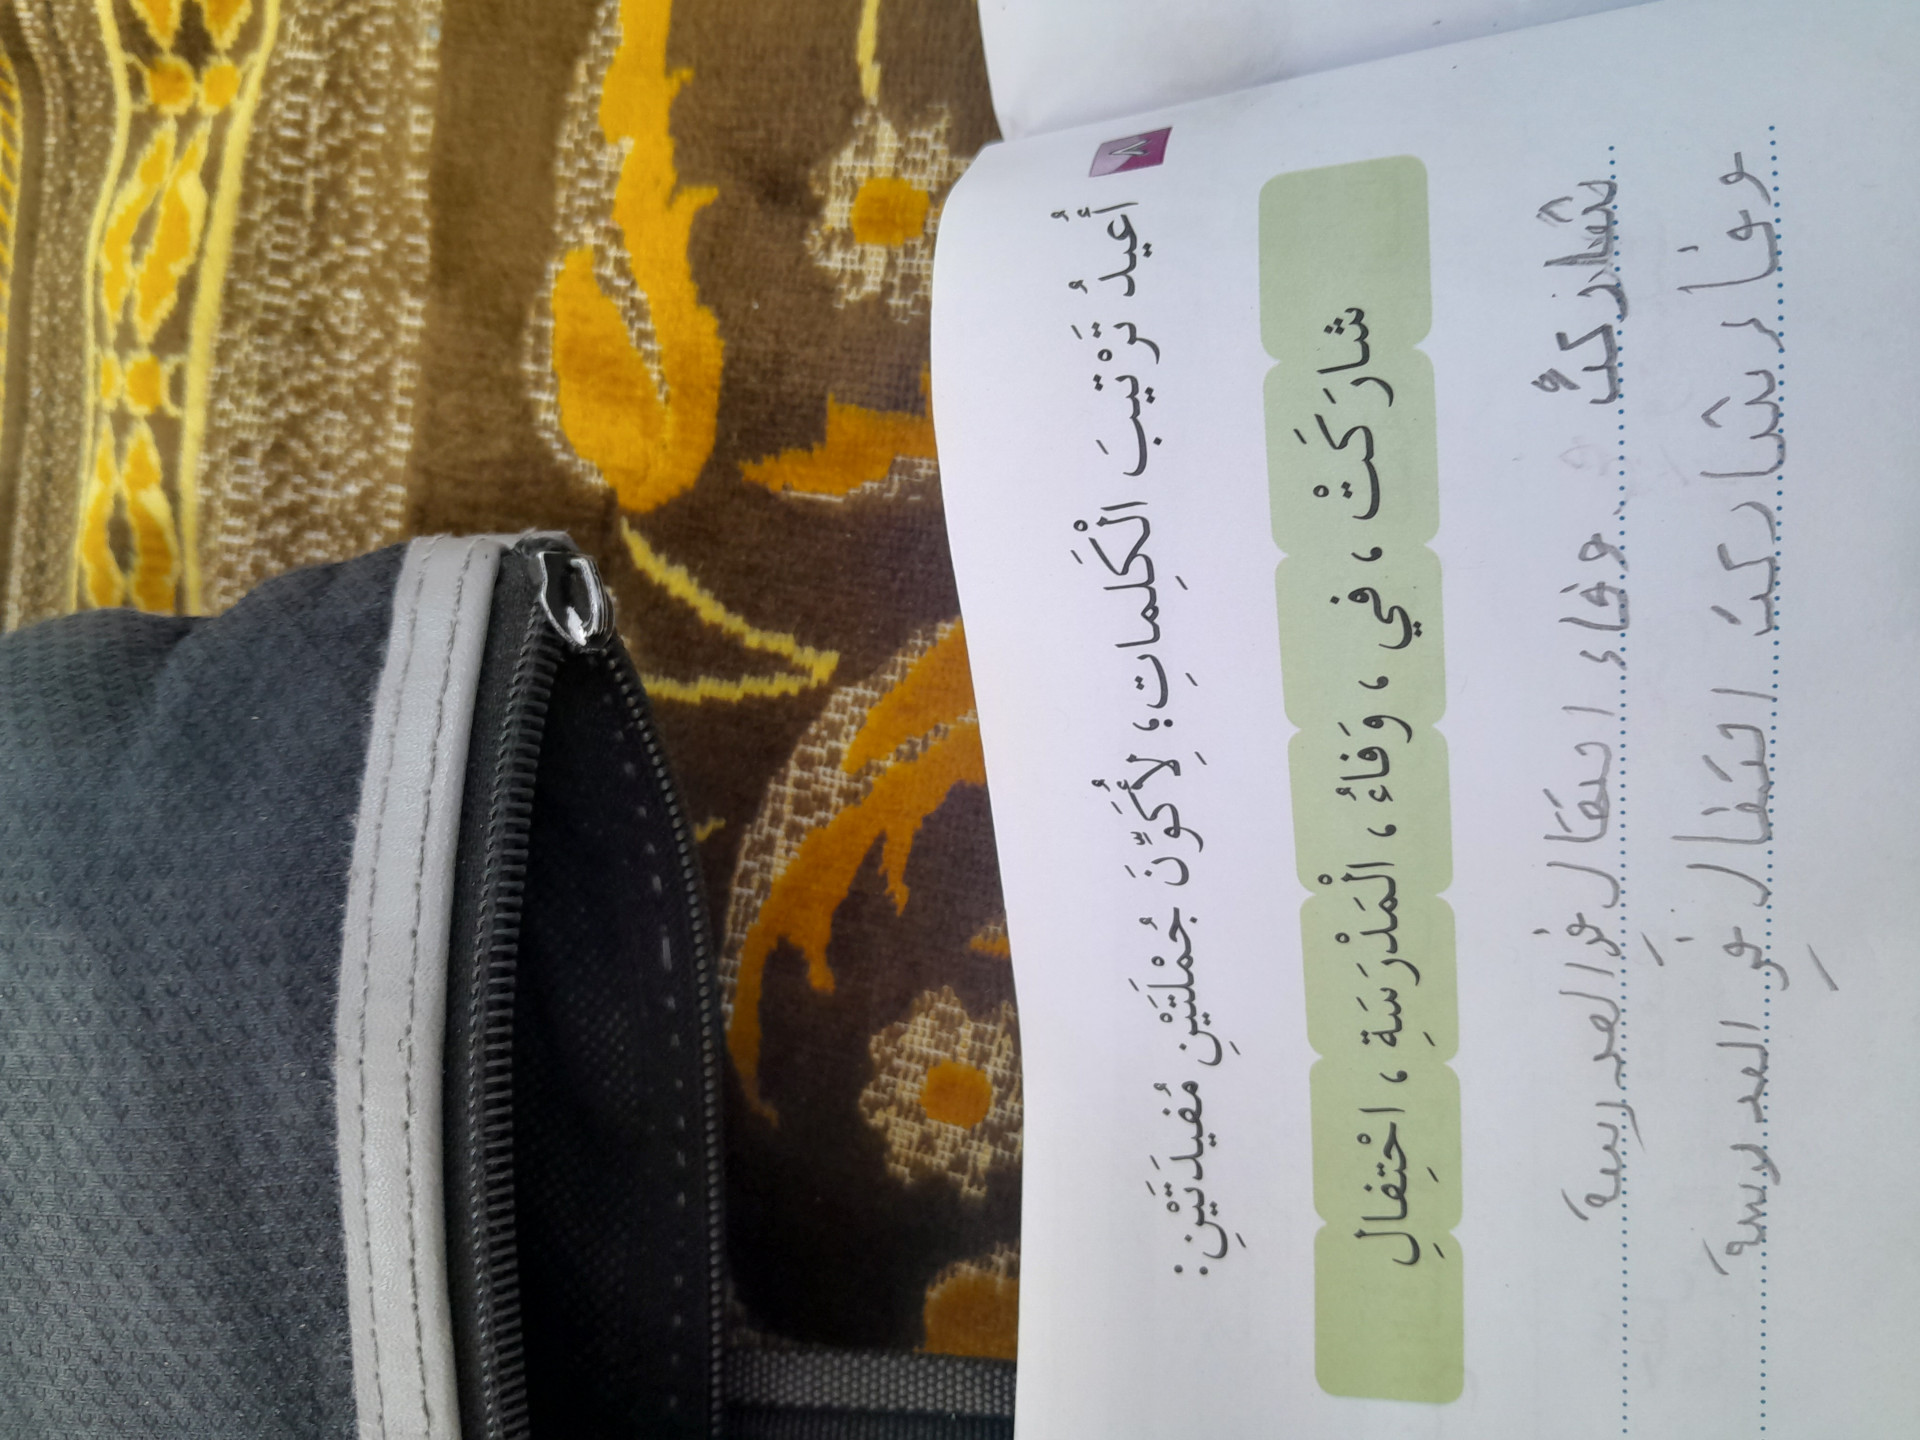 ٨
أُعيدُ تَرْتيبَ الْكَلِماتِ؛ لِأُكَوِّنَ جُمْلَتَيْنِ مُفيدَتَيْنِ:
شارَكَتْ ، في ، وَفاءُ ، الْمَدْرَسَةِ ، احْتِفالِ
شاركت وفاء احتفال في المدرسة
وفاء شاركت احتفال في المدرسة